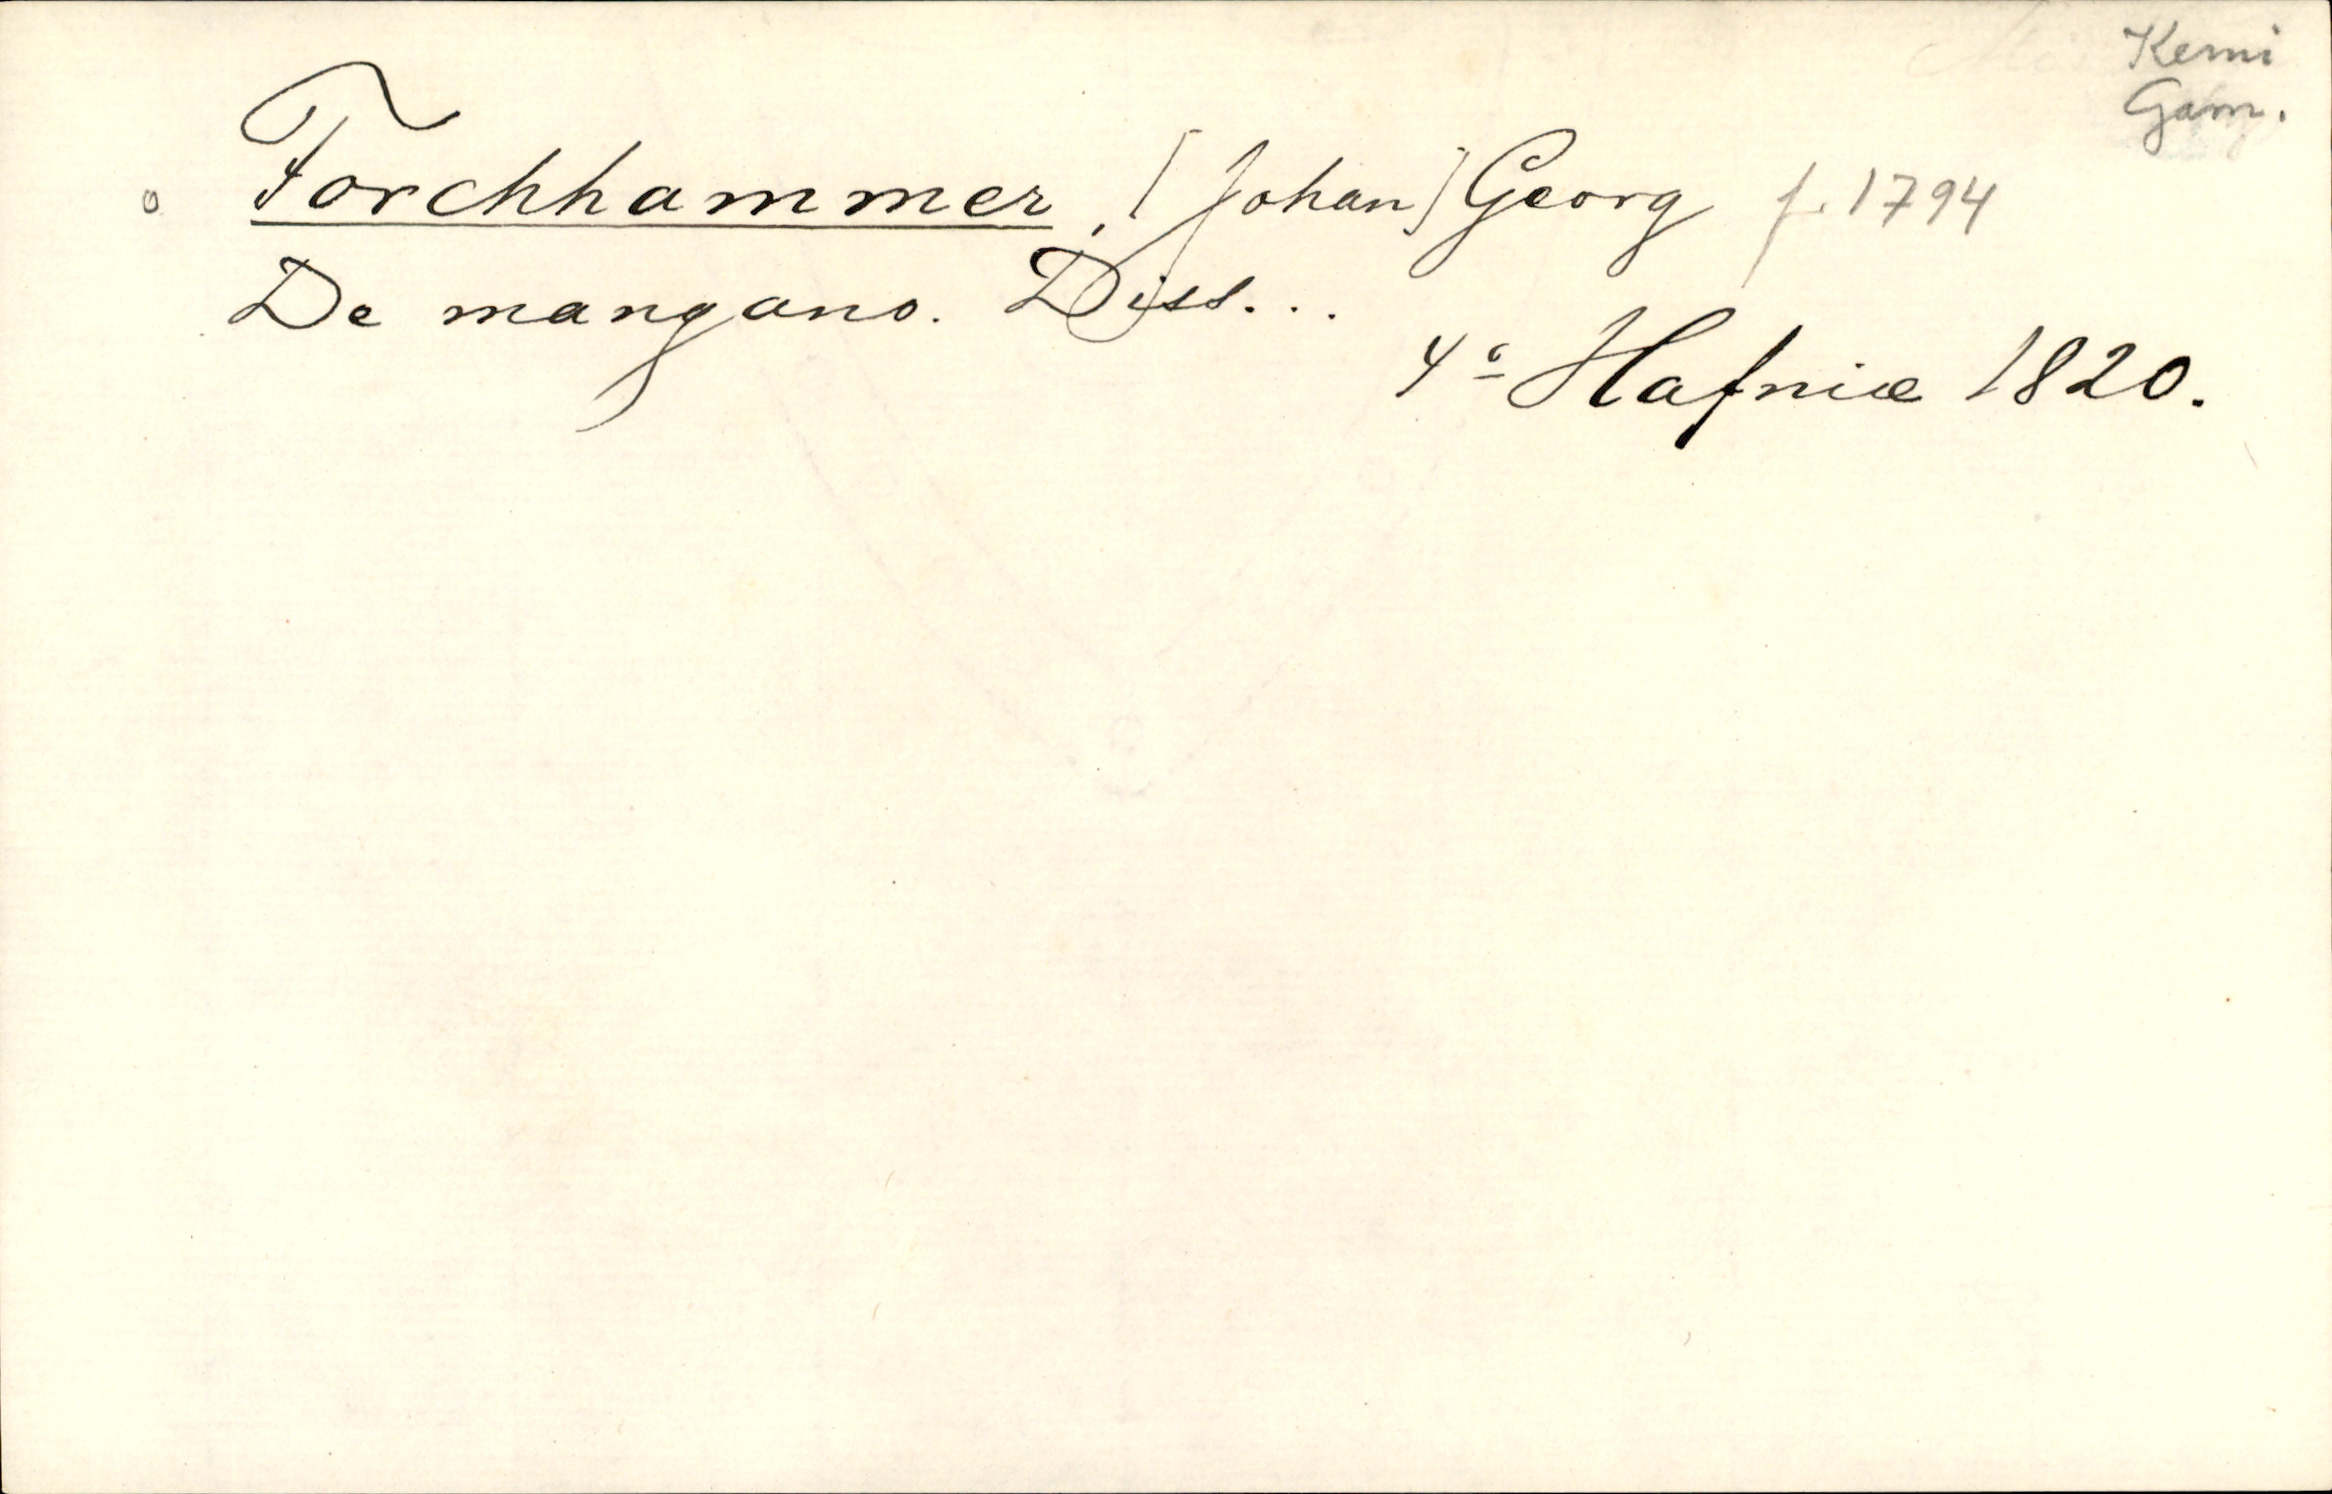 Kemi
Gam.
Forchhammer, [Johan] Georg f. 1794
De mangano. Diss...
4º Hafniæ 1820.